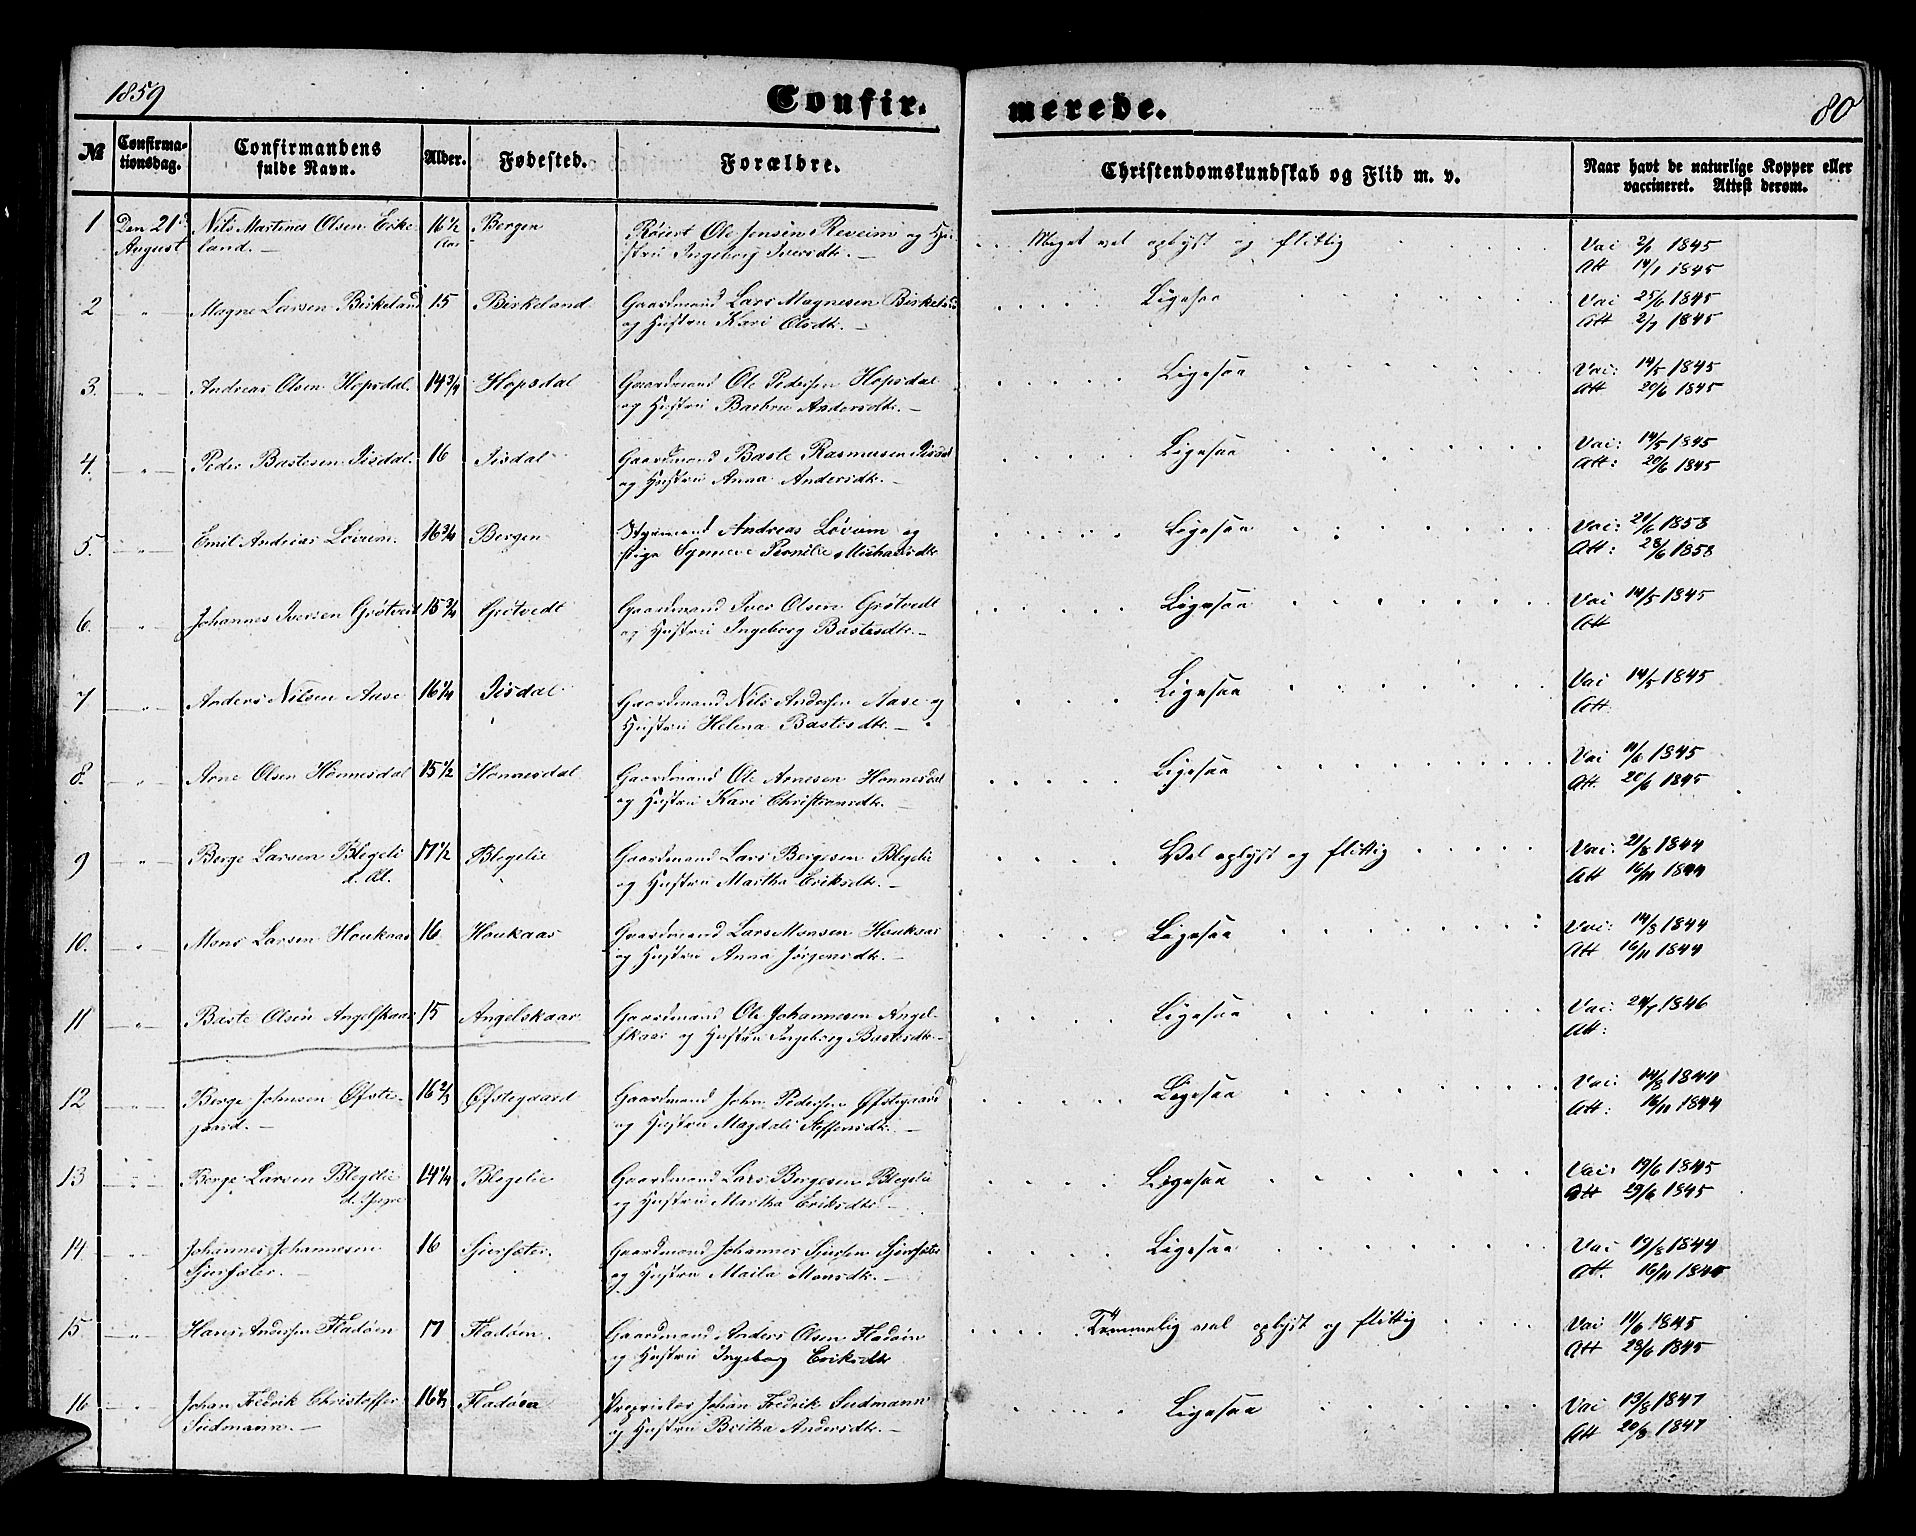 1859
Confir.
merede.
80
№
Confirma-
tionsdag.
Confirmandens
fulde Navn.
Alder.
Fødested.
Forældre.
Christendomskundskab og Flid m. v.
Naar havt de naturlige Kopper eller
vaccineret. Attest derom.
1 Den 21d Nils Martines Olsen Eske 16½ Bergen Røiert Ole Jensen Reveim og Hu-
August land. — Aar stru Ingeborg Iversdtr. — Meget vel oplyst og flittig Vac 2/1 1845
Att 14/1 1845
2 " Magne Larsen Birkeland 15 Birkeland Gaardmand Lars Magnesen Birkeland Ligesaa Vac 25/6 1845
og Hustru Kari Olsdtr. — Att 2/7 1845
3. " Andreas Olsen Hopsdal 14¾ Hopsdal Gaardmand Ole Pedersen Hopsdal Ligesaa Vac: 14/5 1845
og Hustru Barbru Andersdtr. — Att 20/6 1845
4. " Peder Bastesen Iisdal 16 Iisdal Gaardmand Baste Rasmussen Iisdal Ligesaa Vac: 14/5 1845
og Hustru Anna Andersdtr. — Att: 20/6 1845
5. " Emil Andreas Lovum 16¾ Bergen Styrmand Andreas Lovum og Ligesaa Vac: 21/6 1858
Pige Synneve Pernilie Michaelsdtr Att: 28/6 1858
6. " Johannes Iversen Grötvedt 15¾ Grötvedt Gaardmand Iver Olsen Grötvedt Ligesaa Vac 14/5 1845
og Hustru Ingeborg Bastesdtr. — Att
7 " Anders Nilsen Aase 16¼ Iisdal Gaardmand Nils Andersen Aase og Ligesaa Vac 14/5 1845
Hustru Helena Bastesdtr. — Att
8. " Arne Olsen Honnesdal 15½ Honnesdal Gaardmand Ole Arnesen Honnesdal Ligesaa Vac 11/6 1845
og Hustru Kari Christensdtr. — Att. 20/6 1845
9 " Berge Larsen Blegeli 17½ Blegelie Gaardmand Lars Bergesen Blegelie Vel oplyst og flittig Vac: 21/8 1844
d. Æl. og Hustru Martha Eriksdtr. — Att 16/11 1844
10. " Mons Larsen Houkaas 16 Houkaas Gaardmand Lars Monsen Houkaas Ligesaa Vac: 14/8 1844
og Hustru Anna Jørgensdtr. — Att 16/11 1844
11 " Baste Olsen Angelskaar 15 Angelskaar Gaardmand Ole Johannesen Angel- Ligesaa Vac: 24/7 1846
skaar og Hustru Ingeborg Bastesdtr. — Att:
12 " Berge Johnsen Øfste- 16⅔ Øfstegaard Gaardmand John Pedersen Øfstegaard Ligesaa Vac: 14/8 1844
gaard. — og Hustru Magdali Steffensdtr. — Att: 16/11 1844
13 " Berge Larsen Blegelie 14¼ Blegelie Gaardmand Lars Bergesen Blegelie Ligesaa Vac: 19/6 1845
d. Yngre og Hustru Martha Eriksdtr. — Att 29/6 1845
14. " Johannes Johannesen 16 Sjursæter. Gaardmand Johannes Sjursen Sjursæter Ligesaa Vac 19/8 1844
Sjursæter. — og Hustru Maila Monsdtr. — Att. 16/11 1845
15. " Hans Andersen Fladøen 17 Fladøen. Gaardmand Anders Olsen Fladøen Temmelig vel oplyst og flittig Vac 11/6 1845
og Hustru Ingeborg Eriksdtr Att 28/6 1845
16 " Johan Fredrik Christoffer 16 Fladøen Proprietær Johan Fredrik Sudmann Ligesaa Vac 13/8 1847
Sudmann. — og Hustru Britha Andersdtr. — Att 20/8 1847